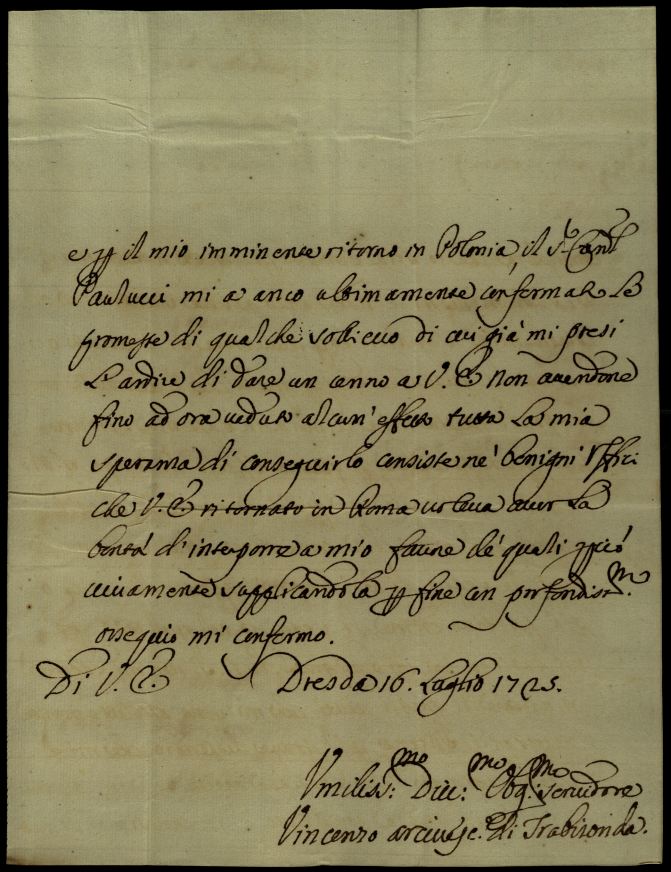 e p il mio imminente ritorno in Polonia, il S.r Card.l
Paulucci mi à anco ultimamente confermate le
promesse di qualche sollievo di cui già mi presi
l'ardire di dare un cenno a V. E. non avendone
fino ad ora veduto alcun' effetto tutta la mia
speranza di conseguirlo consiste ne' benigni Uffici
che V. E. ritornato in Roma voleva aver la
bontà d'interporre a mio favore de' quali perciò
vivamente supplicandola p fine con profondiss.mo
ossequio mi confermo.
Di V. E. Dresda 16. Luglio 1725.
Umiliss:mo Div:mo Obq:mo servidore
Vincenzo arcivesc. di Trabisonda.